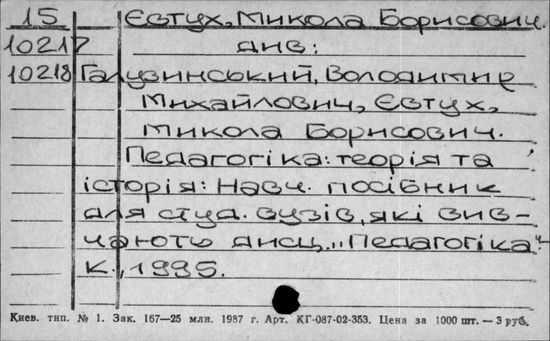 15 Євтух, Микола Борисович.
10217 див:
10218 Галузинський, Володимир
Михайлович, Євтух,
Микола Борисович.
Педагогіка: теорія та
історія: Навч. посібник
для студ. вузів, які вив-
чають дисц. „Педагогіка“.
К., 1995.
Киев. тип. № 1. Зак. 167—25 млн. 1987 г. Арт. КГ-087-02-353. Цена за 1000 шт. — 3 руб.